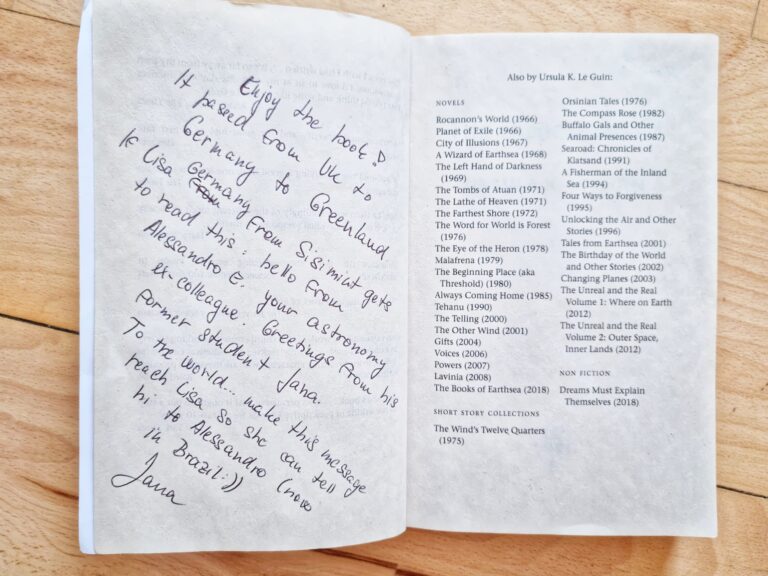 Enjoy the book :D
It passed from UK to
Germany to Greenland
If Lisa Germany from Sisimiut gets
to read this: hello from
Alessandro E. your astronomy
ex-colleague. Greetings from his
former student Jana.
To the world... make this message
reach Lisa so she can tell
hi to Alessandro (now
in Brazil :))
Jana
Also by Ursula K. Le Guin:
NOVELS
Rocannon's World (1966)
Planet of Exile (1966)
City of Illusions (1967)
A Wizard of Earthsea (1968)
The Left Hand of Darkness
(1969)
The Tombs of Atuan (1971)
The Lathe of Heaven (1971)
The Farthest Shore (1972)
The Word for World is Forest
(1976)
The Eye of the Heron (1978)
Malafrena (1979)
The Beginning Place (aka
Threshold) (1980)
Always Coming Home (1985)
Tehanu (1990)
The Telling (2000)
The Other Wind (2001)
Gifts (2004)
Voices (2006)
Powers (2007)
Lavinia (2008)
The Books of Earthsea (2018)
SHORT STORY COLLECTIONS
The Wind's Twelve Quarters
(1975)
Orsinian Tales (1976)
The Compass Rose (1982)
Buffalo Gals and Other
Animal Presences (1987)
Searoad: Chronicles of
Klatsand (1991)
A Fisherman of the Inland
Sea (1994)
Four Ways to Forgiveness
(1995)
Unlocking the Air and Other
Stories (1996)
Tales from Earthsea (2001)
The Birthday of the World
and Other Stories (2002)
Changing Planes (2003)
The Unreal and the Real
Volume 1: Where on Earth
(2012)
The Unreal and the Real
Volume 2: Outer Space,
Inner Lands (2012)
NON FICTION
Dreams Must Explain
Themselves (2018)